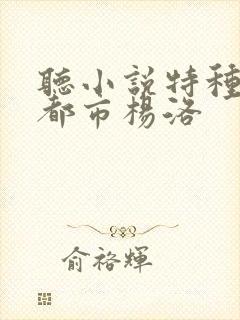 聽小說特種
都市楊洛
俞裕輝